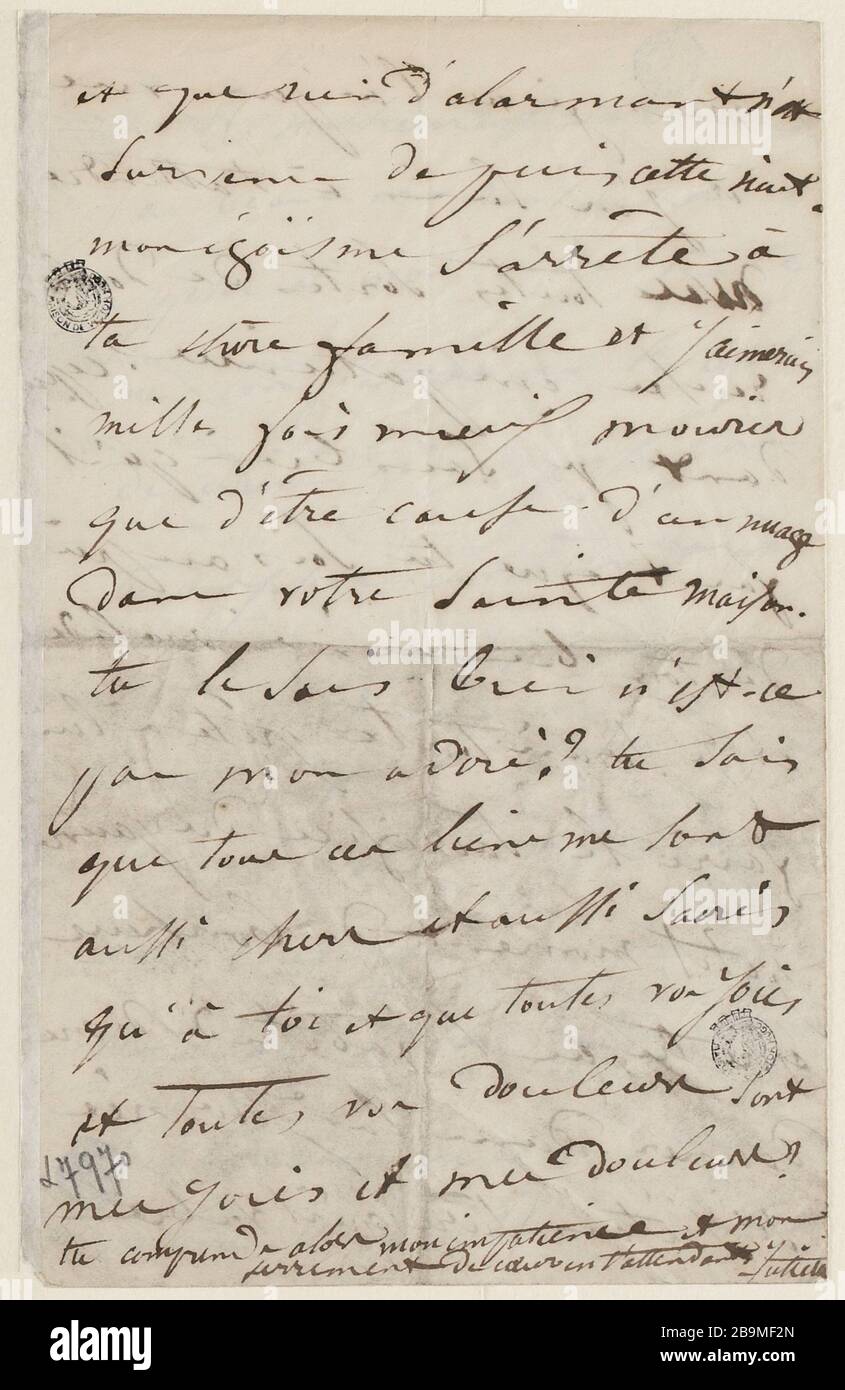 et que rien d'alarmant n'est
survenu depuis cette nuit.
mon égoïsme s'arrête à
ta chère famille et j'aimerais
mille fois mieux mourir
que d'être cause d'un nuage
dans votre sainte maison.
tu le sais bien n'est-ce
pas mon adoré? tu sais
que tous ces liens me sont
aussi chers et aussi sacrés
qu'à toi et que toutes vos joies
et toutes vos douleurs sont
mes joies et mes douleurs.
tu comprends alors mon impatience et mon
serrement de cœur en t'attendant
Juliette
alamy
Image ID: 2B9MF2N
www.alamy.com